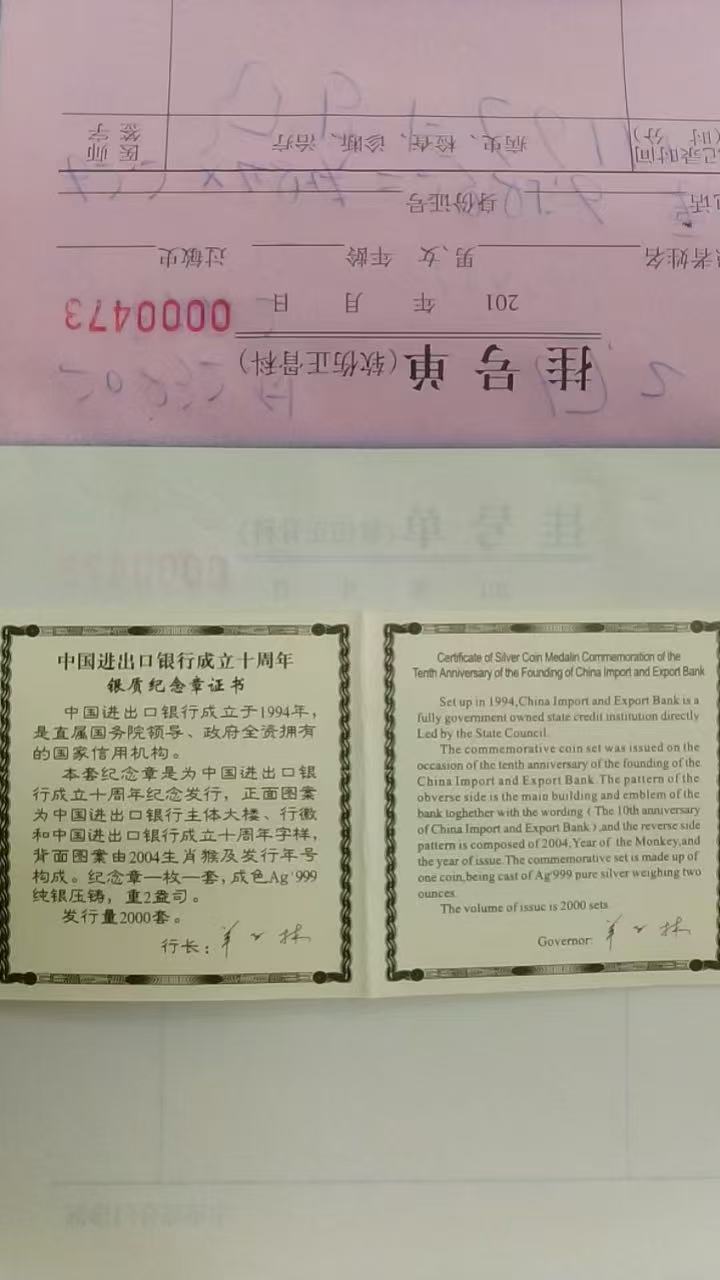 挂号单(软伤正骨科)
201 年 月 日
0000473
者姓名 男、女 年龄 过敏史
电话 身份证号
记录时间(时 分) 病史、检查、诊断、治疗 医师签字
中国进出口银行成立十周年
银质纪念章证书
中国进出口银行成立于1994年,
是直属国务院领导、政府全资拥有
的国家信用机构。
本套纪念章是为中国进出口银
行成立十周年纪念发行，正面图案
为中国进出口银行主体大楼、行徽
和中国进出口银行成立十周年字样，
背面图案由2004生肖猴及发行年号
构成。纪念章一枚一套,成色Ag 999
纯银压铸，重2盎司。
发行量2000套。
行长：
Certificate of Silver Coin Medalin Commemoration of the
Tenth Anniversary of the Founding of China Import and Export Bank
Set up in 1994,China Import and Export Bank is a
fully government owned state credit institution directly
Led by the State Council.
The commemorative coin set was issued on the
occasion of the tenth anniversary of the founding of the
China Import and Export Bank.The pattern of the
obverse side is the main building and emblem of the
bank toghether with the wording (The 10th anniversary
of China Import and Export Bank),and the reverse side
pattern is composed of 2004,Year of the Monkey,and
the year of issue.The commemorative set is made up of
one coin,being cast of Ag 999 pure silver weighing two
ounces.
The volume of issue is 2000 sets.
Governor: